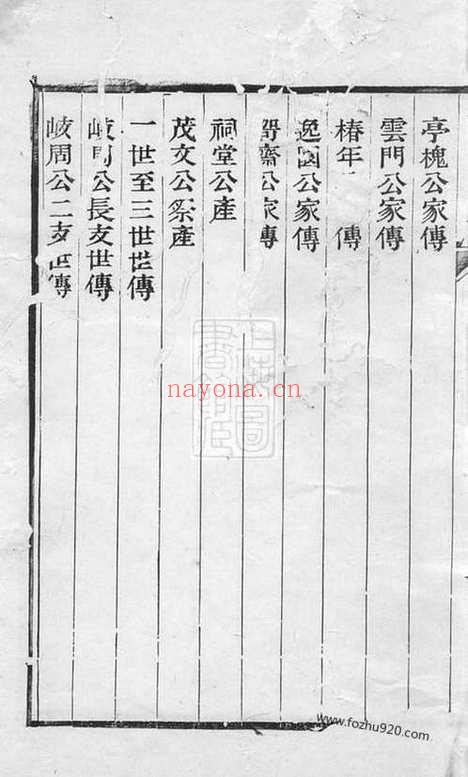 亭槐公家傳
雲門公家傳
椿年 傳
逸園公家傳
齋公家傳
祠堂公產
茂文公祭產
一世至三世世傳
岐周公長支世傳
岐周公二支世傳
nayona.cn
www.fozhu920.com